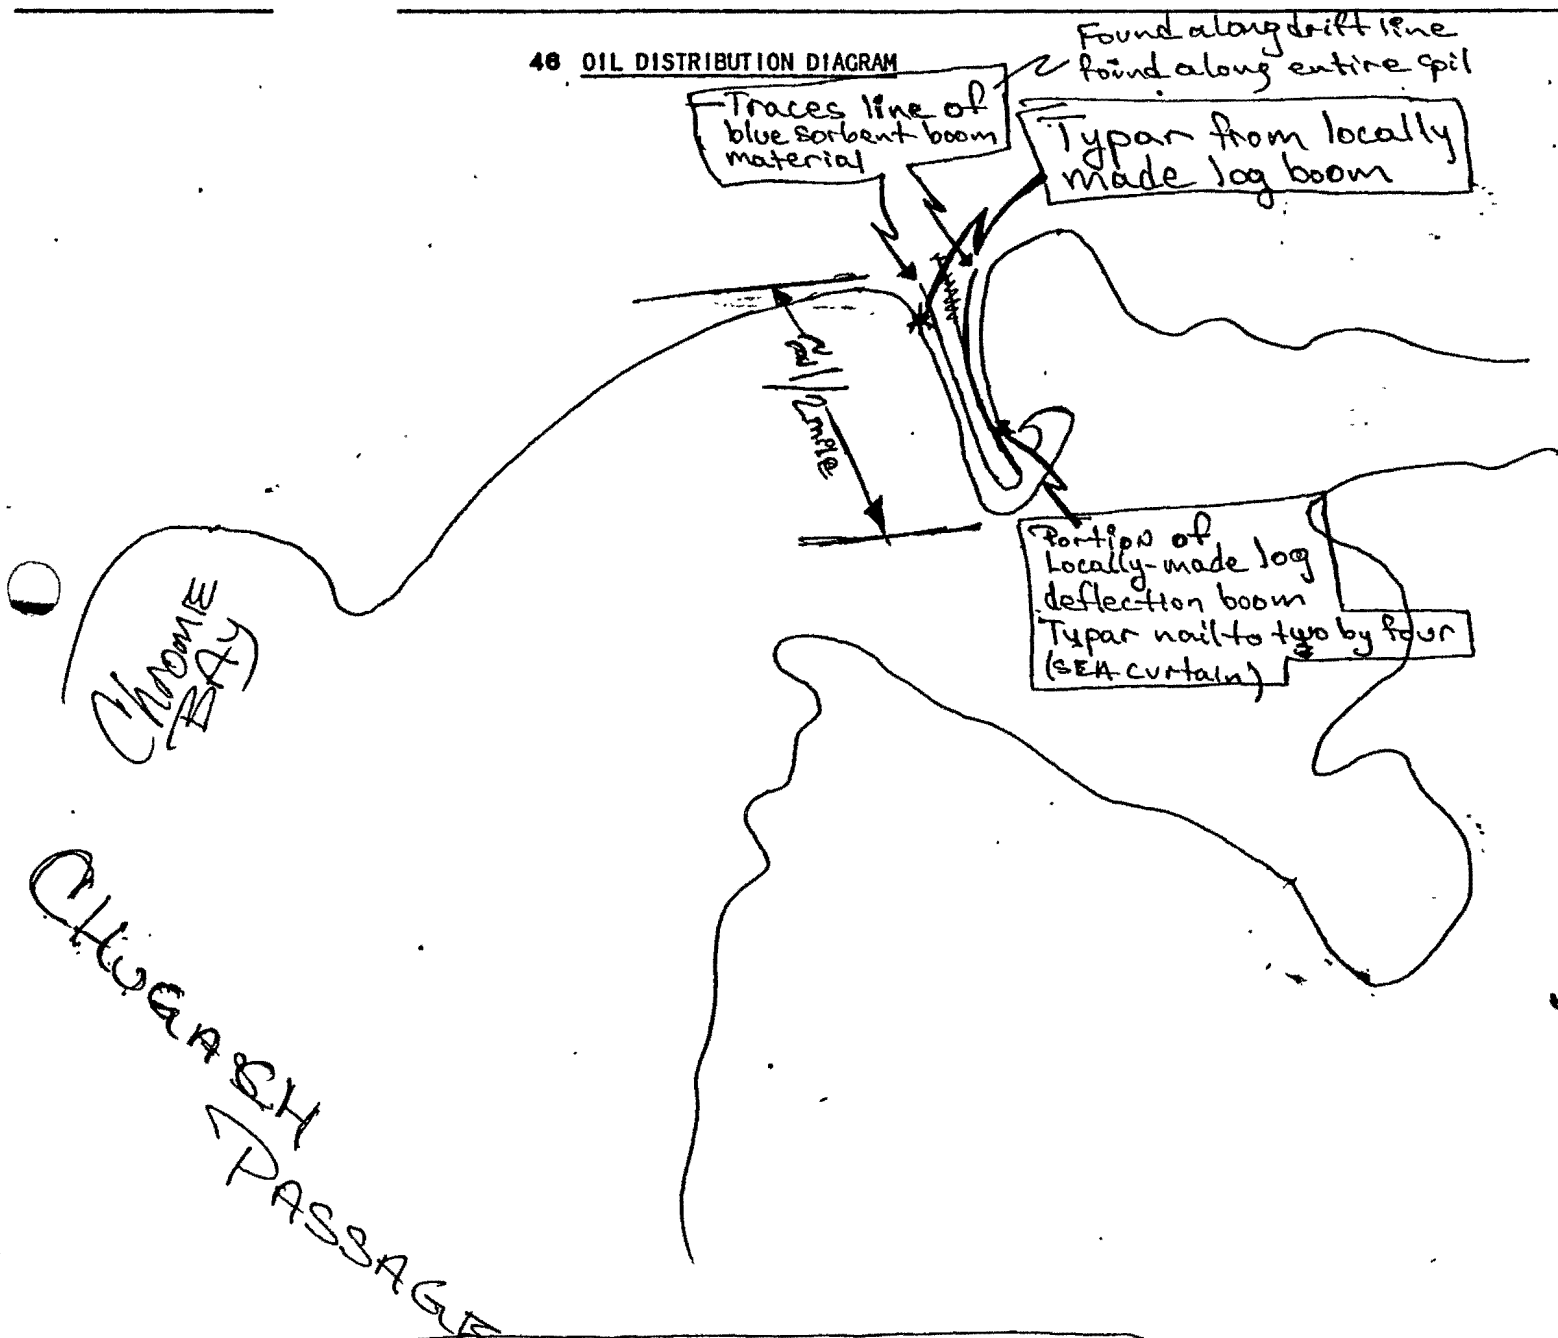 46 OIL DISTRIBUTION DIAGRAM
Found along drift line
found along entire spil
Traces line of
blue sorbent boom
material
Typar from locally
made log boom
1/2 mile
Portion of
Locally-made log
deflection boom
Typar nail to two by four
(SEA curtain)
Chrome
BAy
CHUGASH
PASSAGE